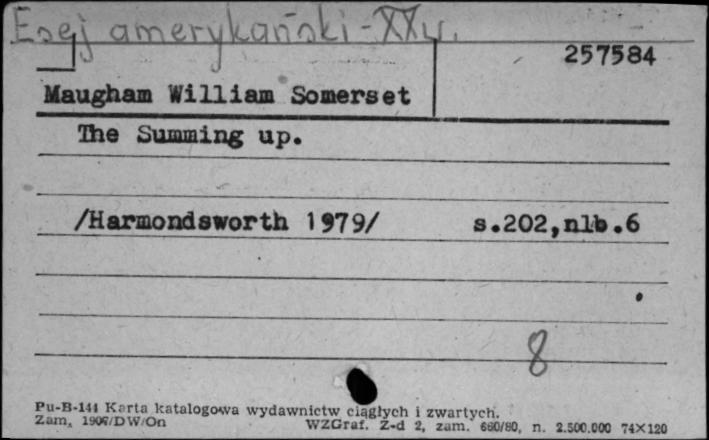 Esej amerykański - XX w.
257584
Maugham William Somerset
The Summing up.
/Harmondsworth 1979/ s.202,nlb.6
8
Pu-B-141 Karta katalogowa wydawnictw ciągłych i zwartych.
Zam. 1906/DW/On WZGraf. Z-d 2, zam. 660/80, n. 2.500.000 74×120